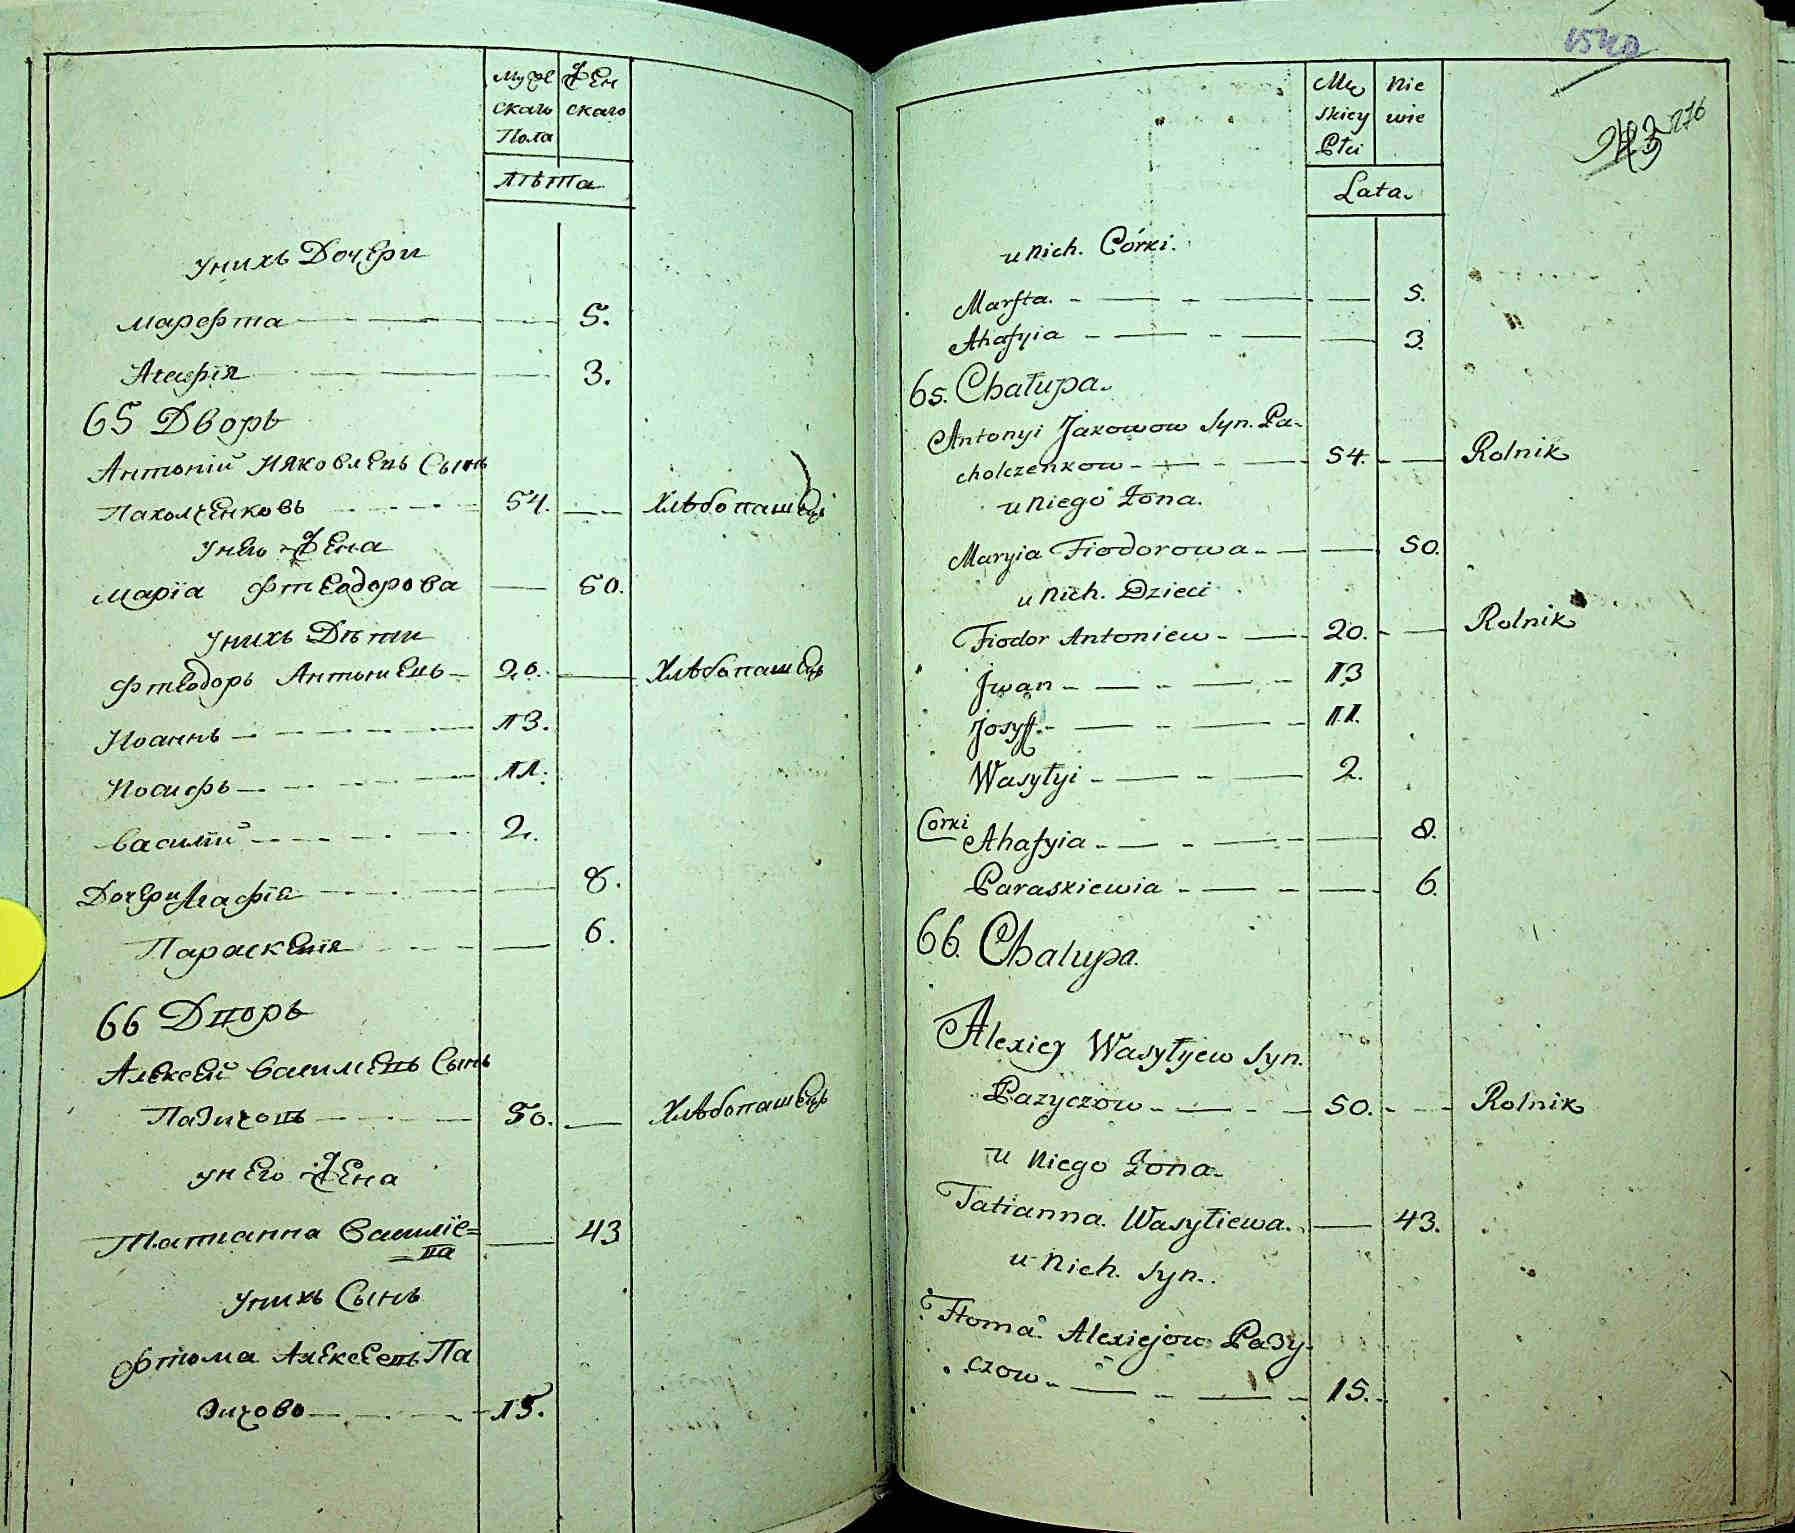 Мужескаго Пола
Женскаго
Лѣта
унихъ Дочери
Марфта 5.
Агафія 3.
65 Дворъ
Антоній Ияковлевъ Сынъ
Пахолченковъ 54. Хлѣбопашецъ
унего Жена
Марїа Фтеодорова 50.
унихъ Дѣти
Фтеодоръ Антоневъ 20. Хлѣбопашецъ
Иоаннъ 13.
Иосифъ 11.
Василій 2.
Дочери Агафїя 8.
Параскевїя 6.
66 Дворъ
Алексей Василевъ Сынъ
Пазичовъ 50. Хлѣбопашецъ
унего Жена
Татианна Василїе=
=ва 43
унихъ Сынъ
Фтома Алексеевъ Па
зичово 15.
1540
276
Męskiey Płci
Niewie
Lata.
u nich. Córki.
Marfta. 5.
Ahafyia 3.
65. Chałupa.
Antonyi Jakowow syn. Pa-
cholczenkow 54. Rolnik
u niego Żona.
Maryia Fiodorowa 50.
u nich. Dzieci
Fiodor Antoniew 20. Rolnik
Jwan 13
Josyff 11.
Wasyłyi 2.
Corki Ahafyia 8.
Paraskiewia 6.
66. Chalupa.
Alexiey Wasyłyew syn.
Pazyczow 50. Rolnik
u niego Żona
Tatianna. Wasyliewa. 43.
u nich. syn.
Ftoma Alexiejow Pazy-
czow 15.